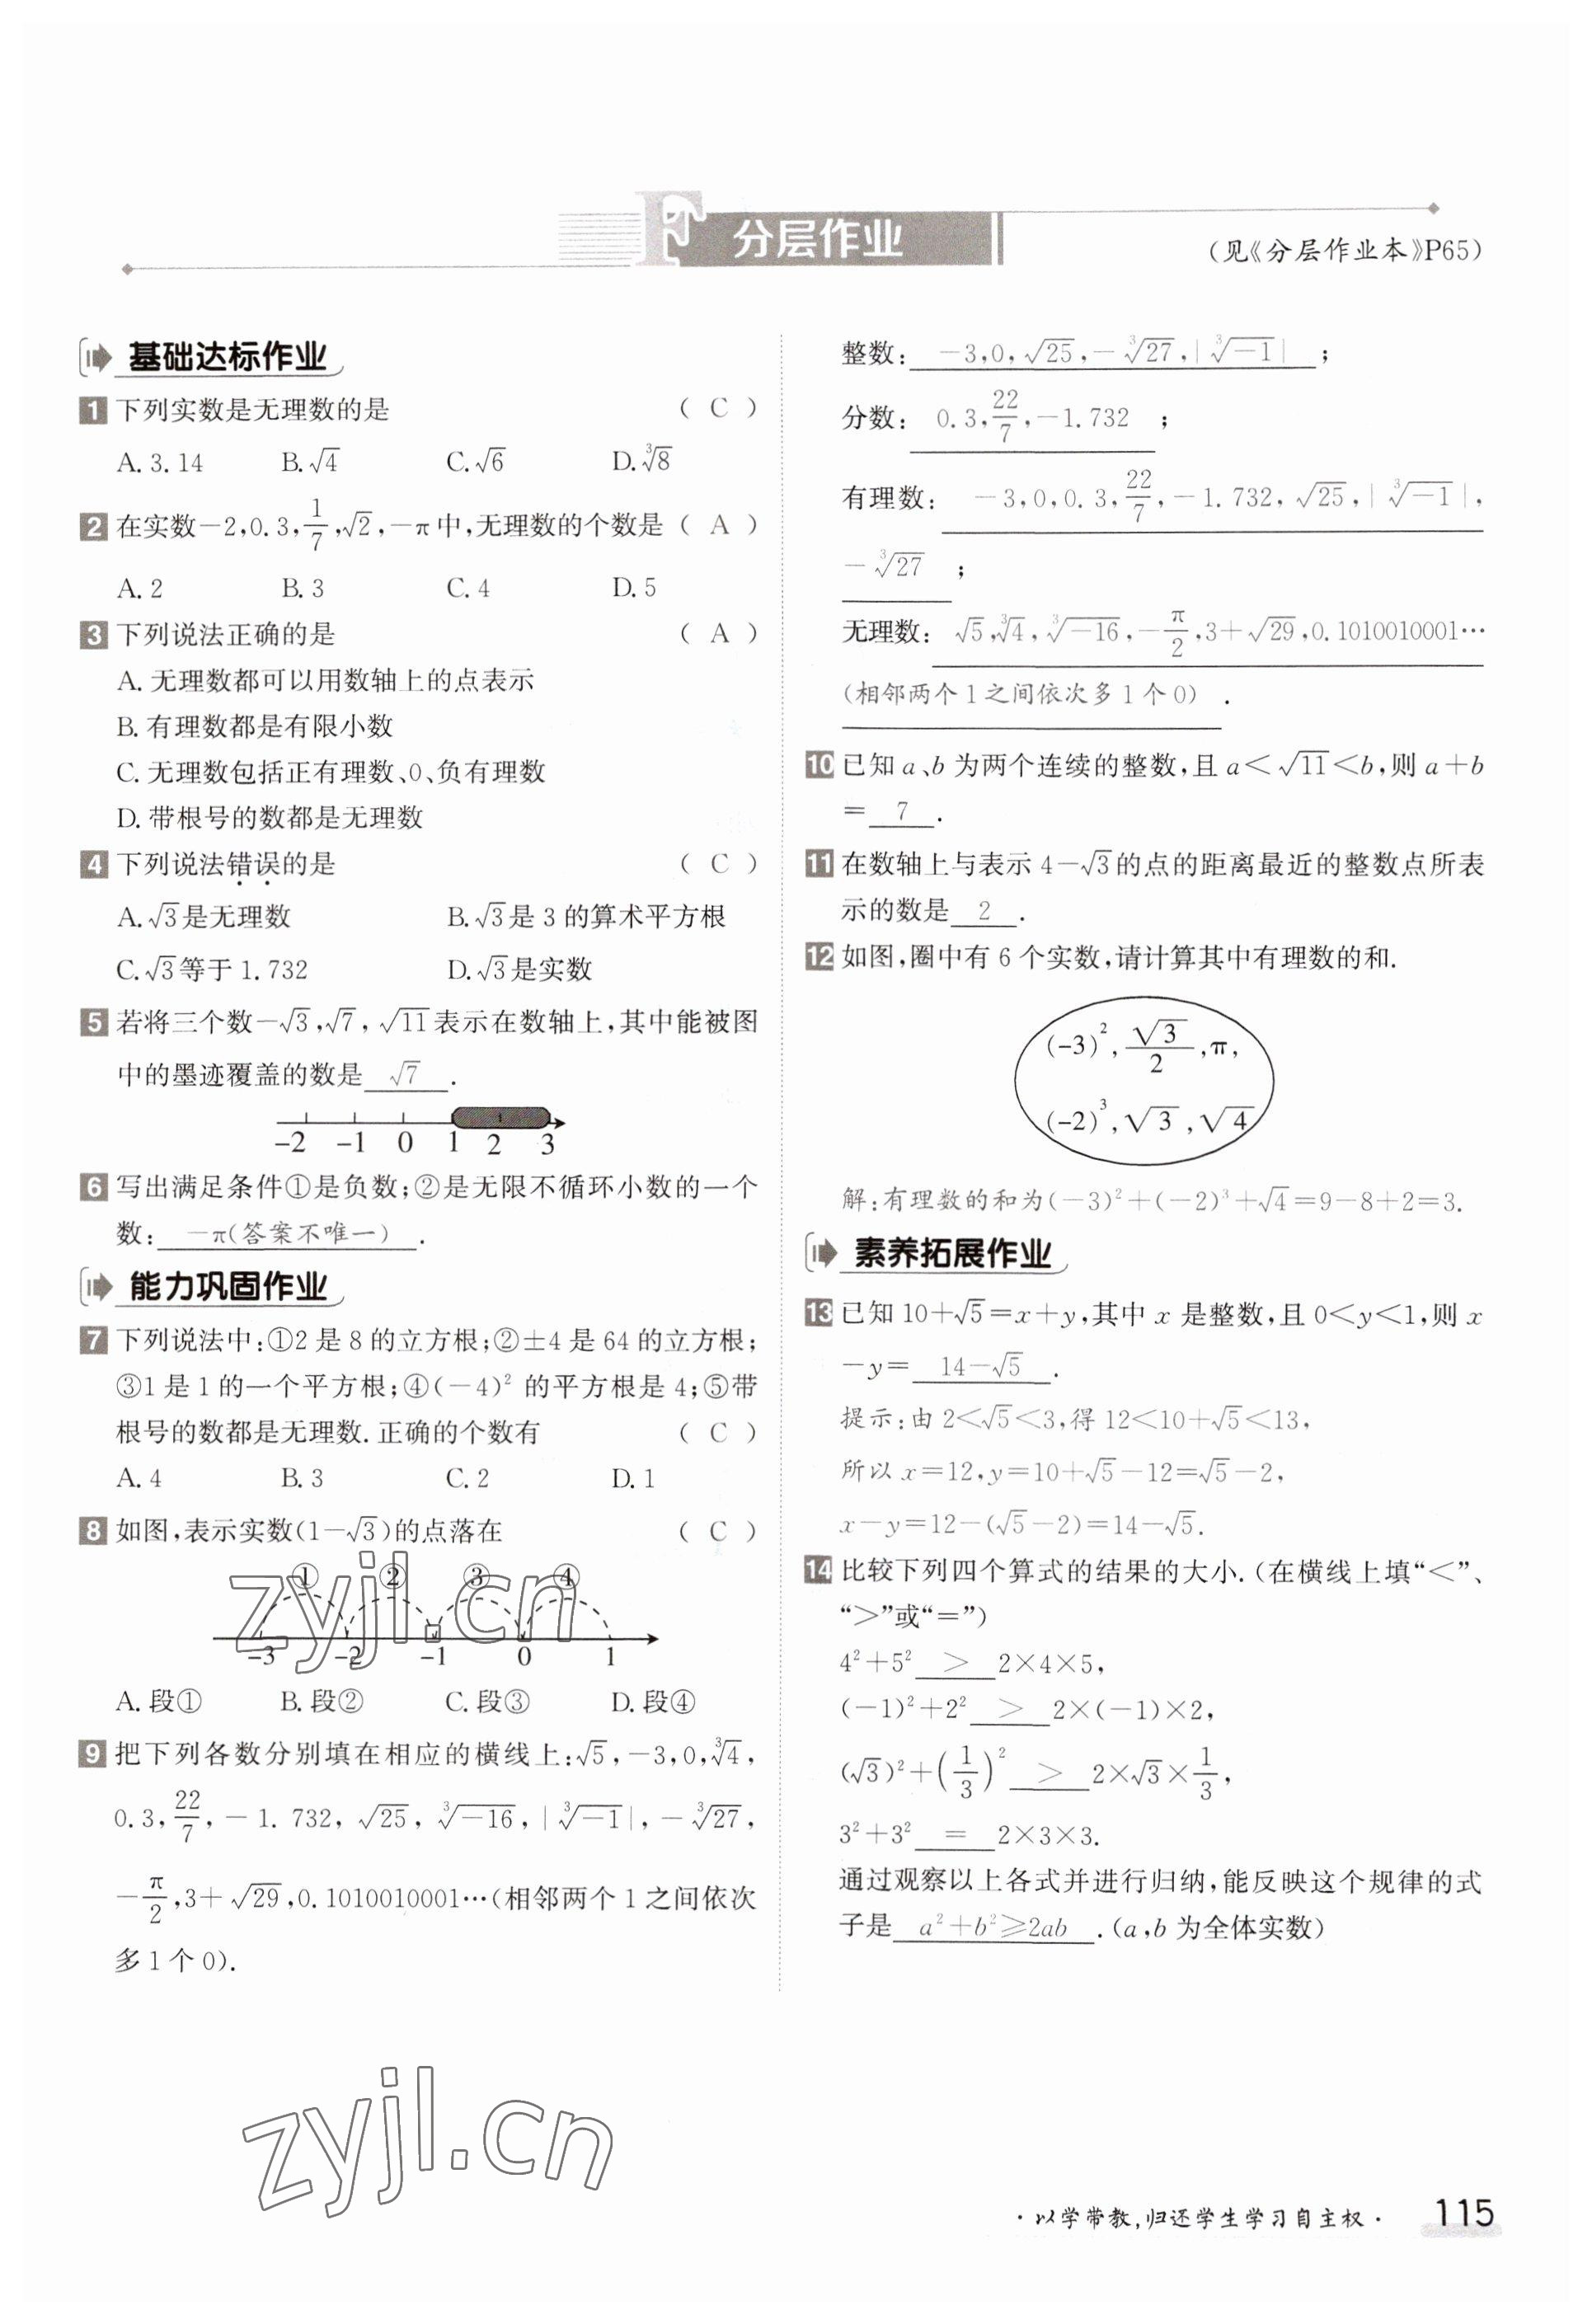 F 分层作业
(见《分层作业本》P65)
基础达标作业
1 下列实数是无理数的是 ( C )
A. 3. 14 B. √4 C. √6 D. ³√8
2 在实数-2,0. 3,1/7,√2,-π中,无理数的个数是( A )
A. 2 B. 3 C. 4 D. 5
3 下列说法正确的是 ( A )
A. 无理数都可以用数轴上的点表示
B. 有理数都是有限小数
C. 无理数包括正有理数、0、负有理数
D. 带根号的数都是无理数
4 下列说法错误的是 ( C )
A. √3是无理数 B. √3是 3 的算术平方根
C. √3等于 1. 732 D. √3是实数
5 若将三个数-√3,√7,√11表示在数轴上,其中能被图
中的墨迹覆盖的数是 √7 .
-2 -1 0 1 2 3
6 写出满足条件①是负数;②是无限不循环小数的一个
数: -π(答案不唯一) .
能力巩固作业
7 下列说法中:①2 是 8 的立方根;②±4 是 64 的立方根;
③1 是 1 的一个平方根;④(-4)² 的平方根是 4;⑤带
根号的数都是无理数. 正确的个数有 ( C )
A. 4 B. 3 C. 2 D. 1
8 如图,表示实数(1-√3)的点落在 ( C )
① ② ③ ④
-3 -2 -1 0 1
A. 段① B. 段② C. 段③ D. 段④
9 把下列各数分别填在相应的横线上:√5,-3,0,³√4,
0. 3,22/7,-1. 732,√25,³√-16,|³√-1|,-³√27,
-π/2,3+√29,0. 1010010001…(相邻两个 1 之间依次
多 1 个 0).
整数: -3,0,√25,-³√27,|³√-1| ;
分数: 0. 3,22/7,-1. 732 ;
有理数: -3,0,0. 3,22/7,-1. 732,√25,|³√-1|,
-³√27 ;
无理数: √5,³√4,³√-16,-π/2,3+√29,0. 1010010001…
(相邻两个 1 之间依次多 1 个 0) .
10 已知 a、b 为两个连续的整数,且 a<√11<b,则 a+b
= 7 .
11 在数轴上与表示 4-√3的点的距离最近的整数点所表
示的数是 2 .
12 如图,圈中有 6 个实数,请计算其中有理数的和.
(-3)²,√3/2,π,
(-2)³,√3,√4
解:有理数的和为(-3)²+(-2)³+√4=9-8+2=3.
素养拓展作业
13 已知 10+√5=x+y,其中 x 是整数,且 0<y<1,则 x
-y= 14-√5 .
提示:由 2<√5<3,得 12<10+√5<13,
所以 x=12,y=10+√5-12=√5-2,
x-y=12-(√5-2)=14-√5.
14 比较下列四个算式的结果的大小. (在横线上填“<”、
“>”或“=”)
4²+5² > 2×4×5,
(-1)²+2² > 2×(-1)×2,
(√3)²+(1/3)² > 2×√3×1/3,
3²+3² = 2×3×3.
通过观察以上各式并进行归纳,能反映这个规律的式
子是 a²+b²≥2ab .(a,b 为全体实数)
zyjl.cn
zyjl.cn
·以学带教,归还学生学习自主权· 115